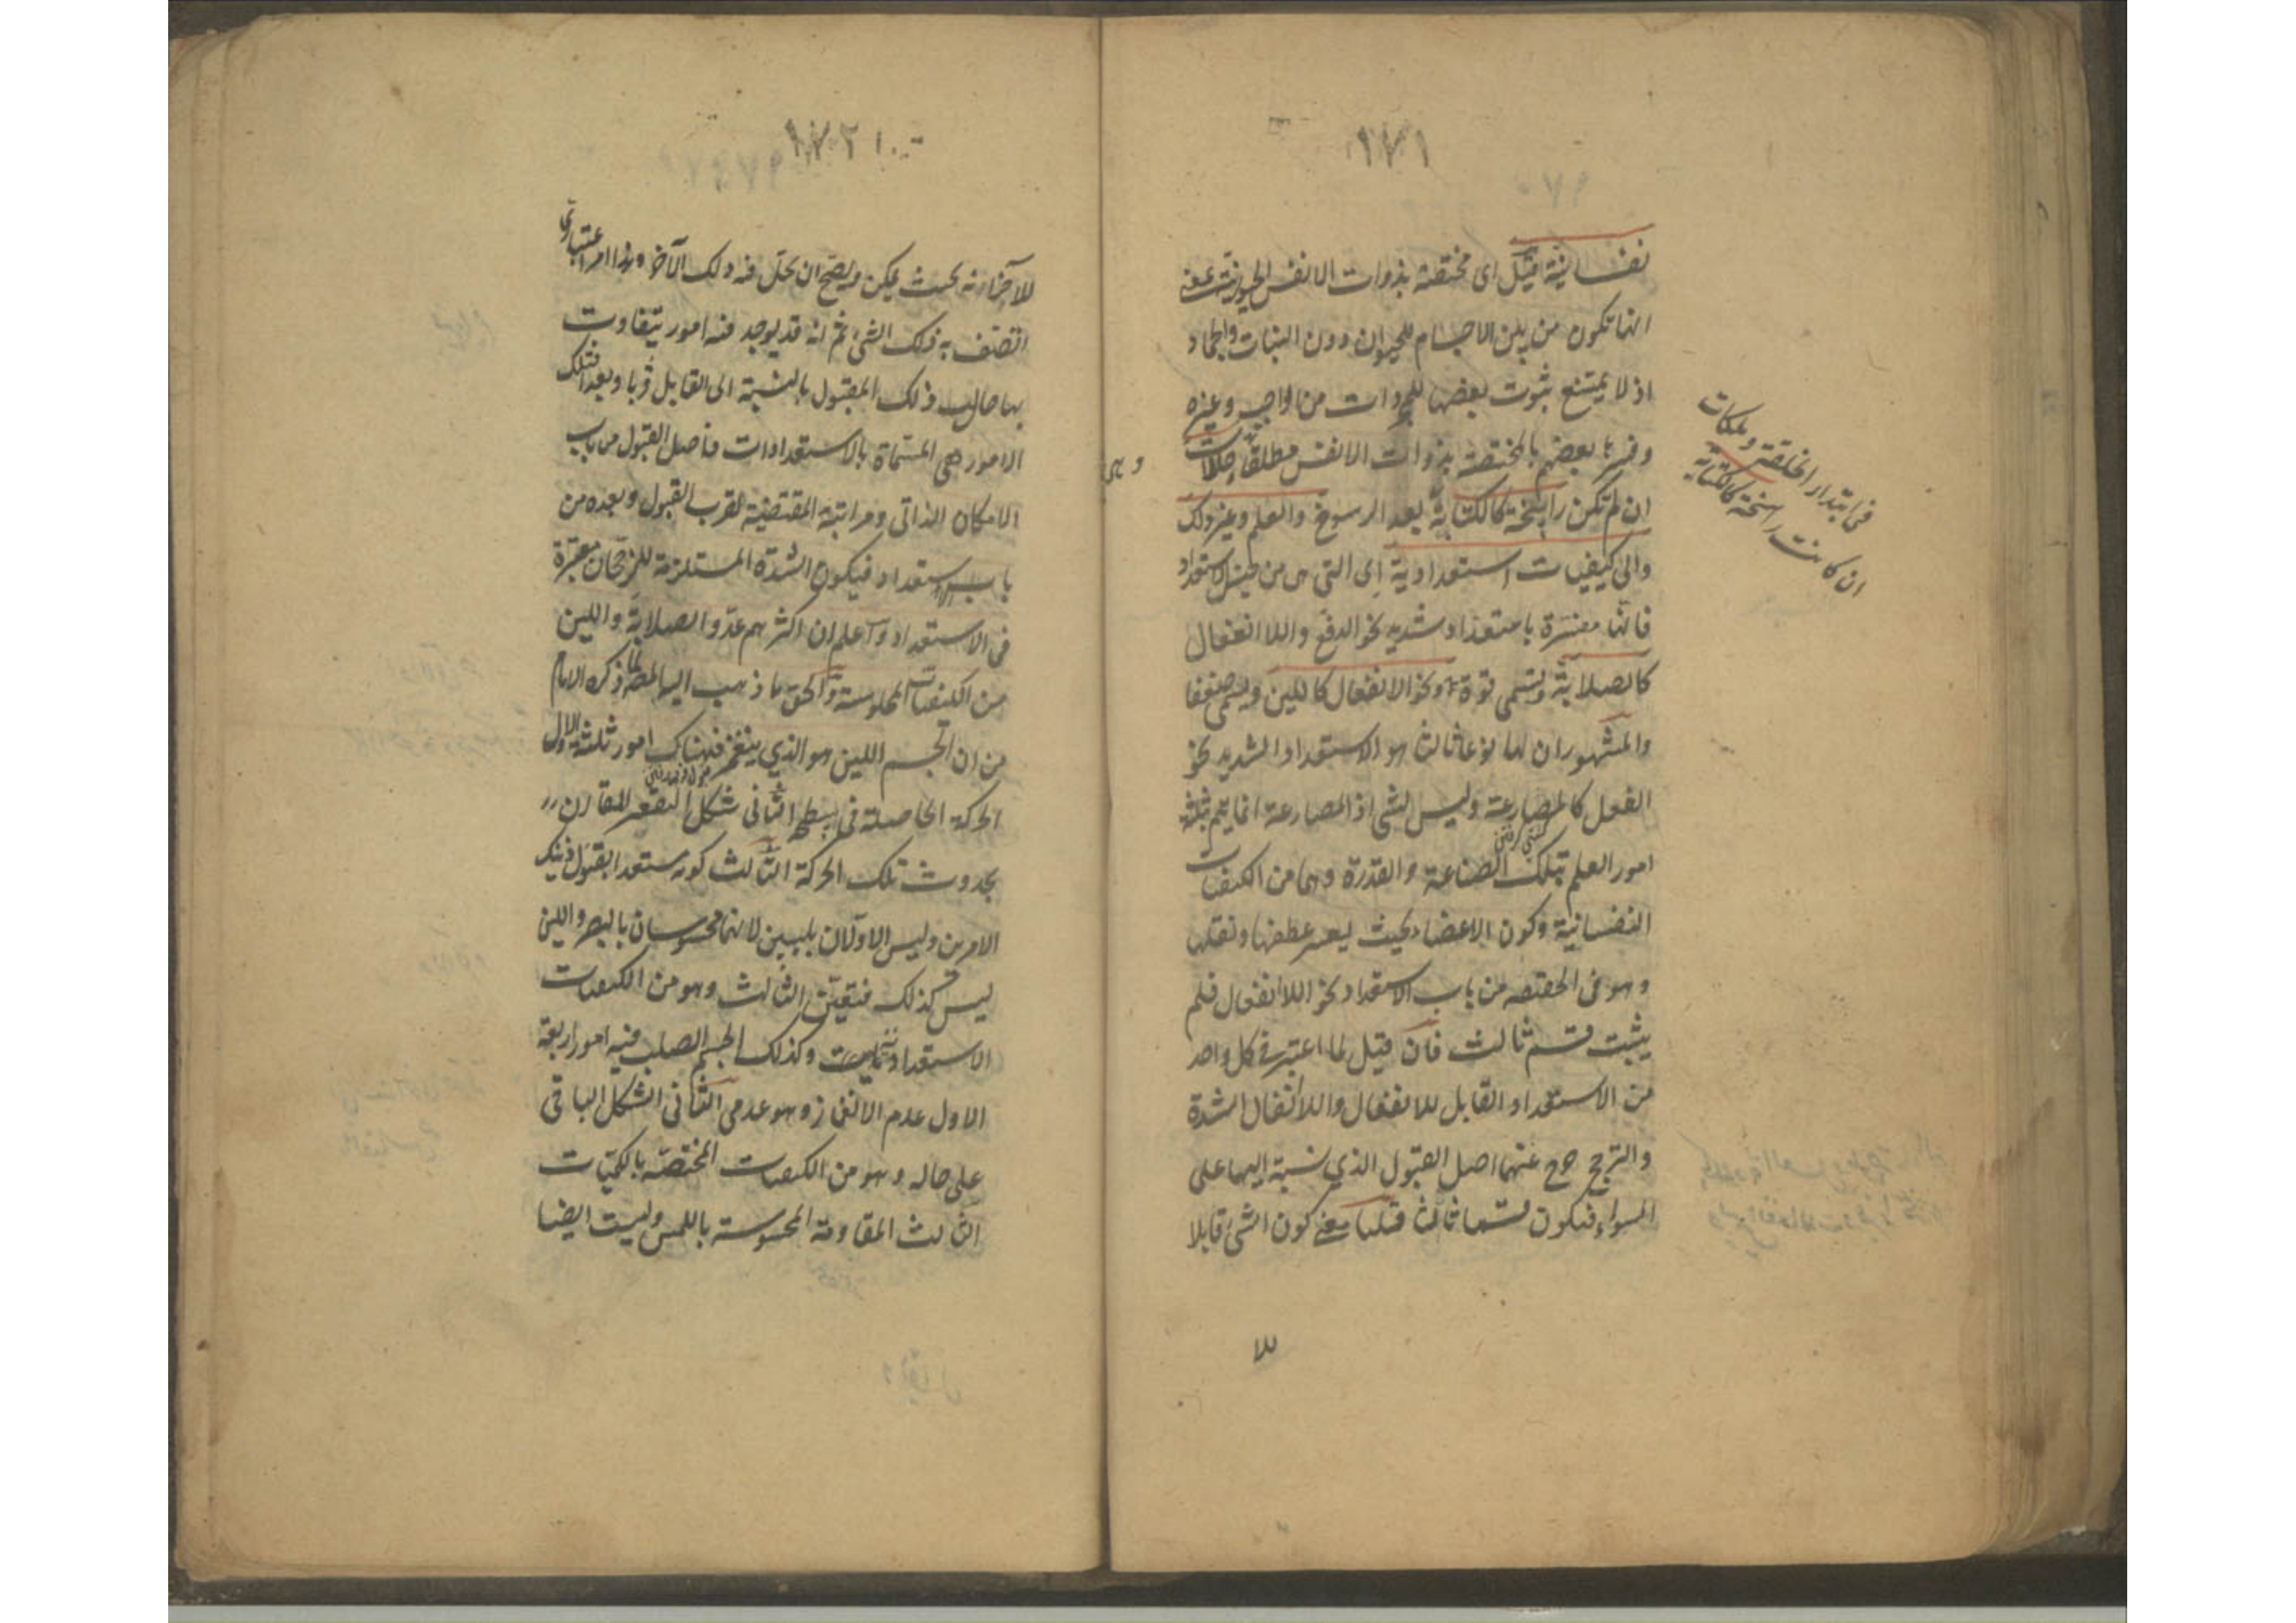 ١٧١
نفسانية قيل اى مختصة بذوات الانفس الحيوانية بمعنى
انها تكون من بين الاجسام للحيوان دون النبات والجماد
اذ لا يمتنع ثبوت بعضها للمجردات من الواجب وغيره
وفسرها بعضهم بالمختصة بذوات الانفس مطلقا حالات
ان لم تكن راسخة كالكتابة بعد الرسوخ والعلم وغير ذلك
والى كيفيات استعدادية اى التى من جنس الاستعداد
فانها مفسرة باستعداد شديد نحو الدفع واللاانفعال
كالصلابة وتسمى قوة او نحو الانفعال كاللين ويسمى ضعفا
والمشهور ان لها نوعا ثالثا هو الاستعداد الشديد نحو
الفعل كالمصارعة وليس بشى اذ المصارعة انما يتم بثلثة
امور العلم بتلك الصناعة والقدرة وهما من الكيفيات
النفسانية وكون الاعضاء بحيث يعسر عطفها ونقلها
وهو فى الحقيقة من باب الاستعداد نحو اللاانفعال فلم
يثبت قسم ثالث فان قيل لما اعتبر فى كل واحد
من الاستعداد القابل للانفعال واللاانفعال الشدة
والترجح خرج عنهما اصل القبول الذي نسبته اليهما على
السواء فيكون قسما ثالثا قلنا معنى كون الشئ قابلا
للا
فى ابتداء الخلقة وملكات
ان كانت راسخة كالكتابة
١٧٢
للآخر انه بحيث يمكن ويصح ان يحل فيه ذلك الآخر وهذا امر اعتبارى
اتصف به ذلك الشئ ثم انه قد يوجد فيه امور يتفاوت
بها حال ذلك المقبول بالنسبة الى القابل قربا وبعدا فتلك
الامور هى المسماة بالاستعدادات فاصل القبول من باب
الامكان الذاتى ومراتبه المقتضية لقرب القبول وبعده من
باب الاستعداد فيكون الشدة المستلزمة للرجحان معتبرة
فى الاستعداد واعلم ان اكثرهم عدوا الصلابة واللين
من الكيفيات الملموسة والحق ما ذهب اليه المص لما ذكره الامام
من ان الجسم اللين هو الذي ينغمز فهناك امور ثلثة الاول
الحركة الحاصلة فى سطحه الثانى شكل التقعير المقارن
بحدوث تلك الحركة الثالث كونه مستعدا لقبول ذينك
الامرين وليس الاولان بلين لانهما محسوسان بالبصر واللين
ليس كذلك فتعين الثالث وهو من الكيفيات
الاستعدادية وكذلك الجسم الصلب فيه امور اربعة
الاول عدم الانغماز وهو عدمى الثانى الشكل الباقى
على حاله وهو من الكيفيات المختصة بالكميات
الثالث المقاومة المحسوسة باللمس وليست ايضا